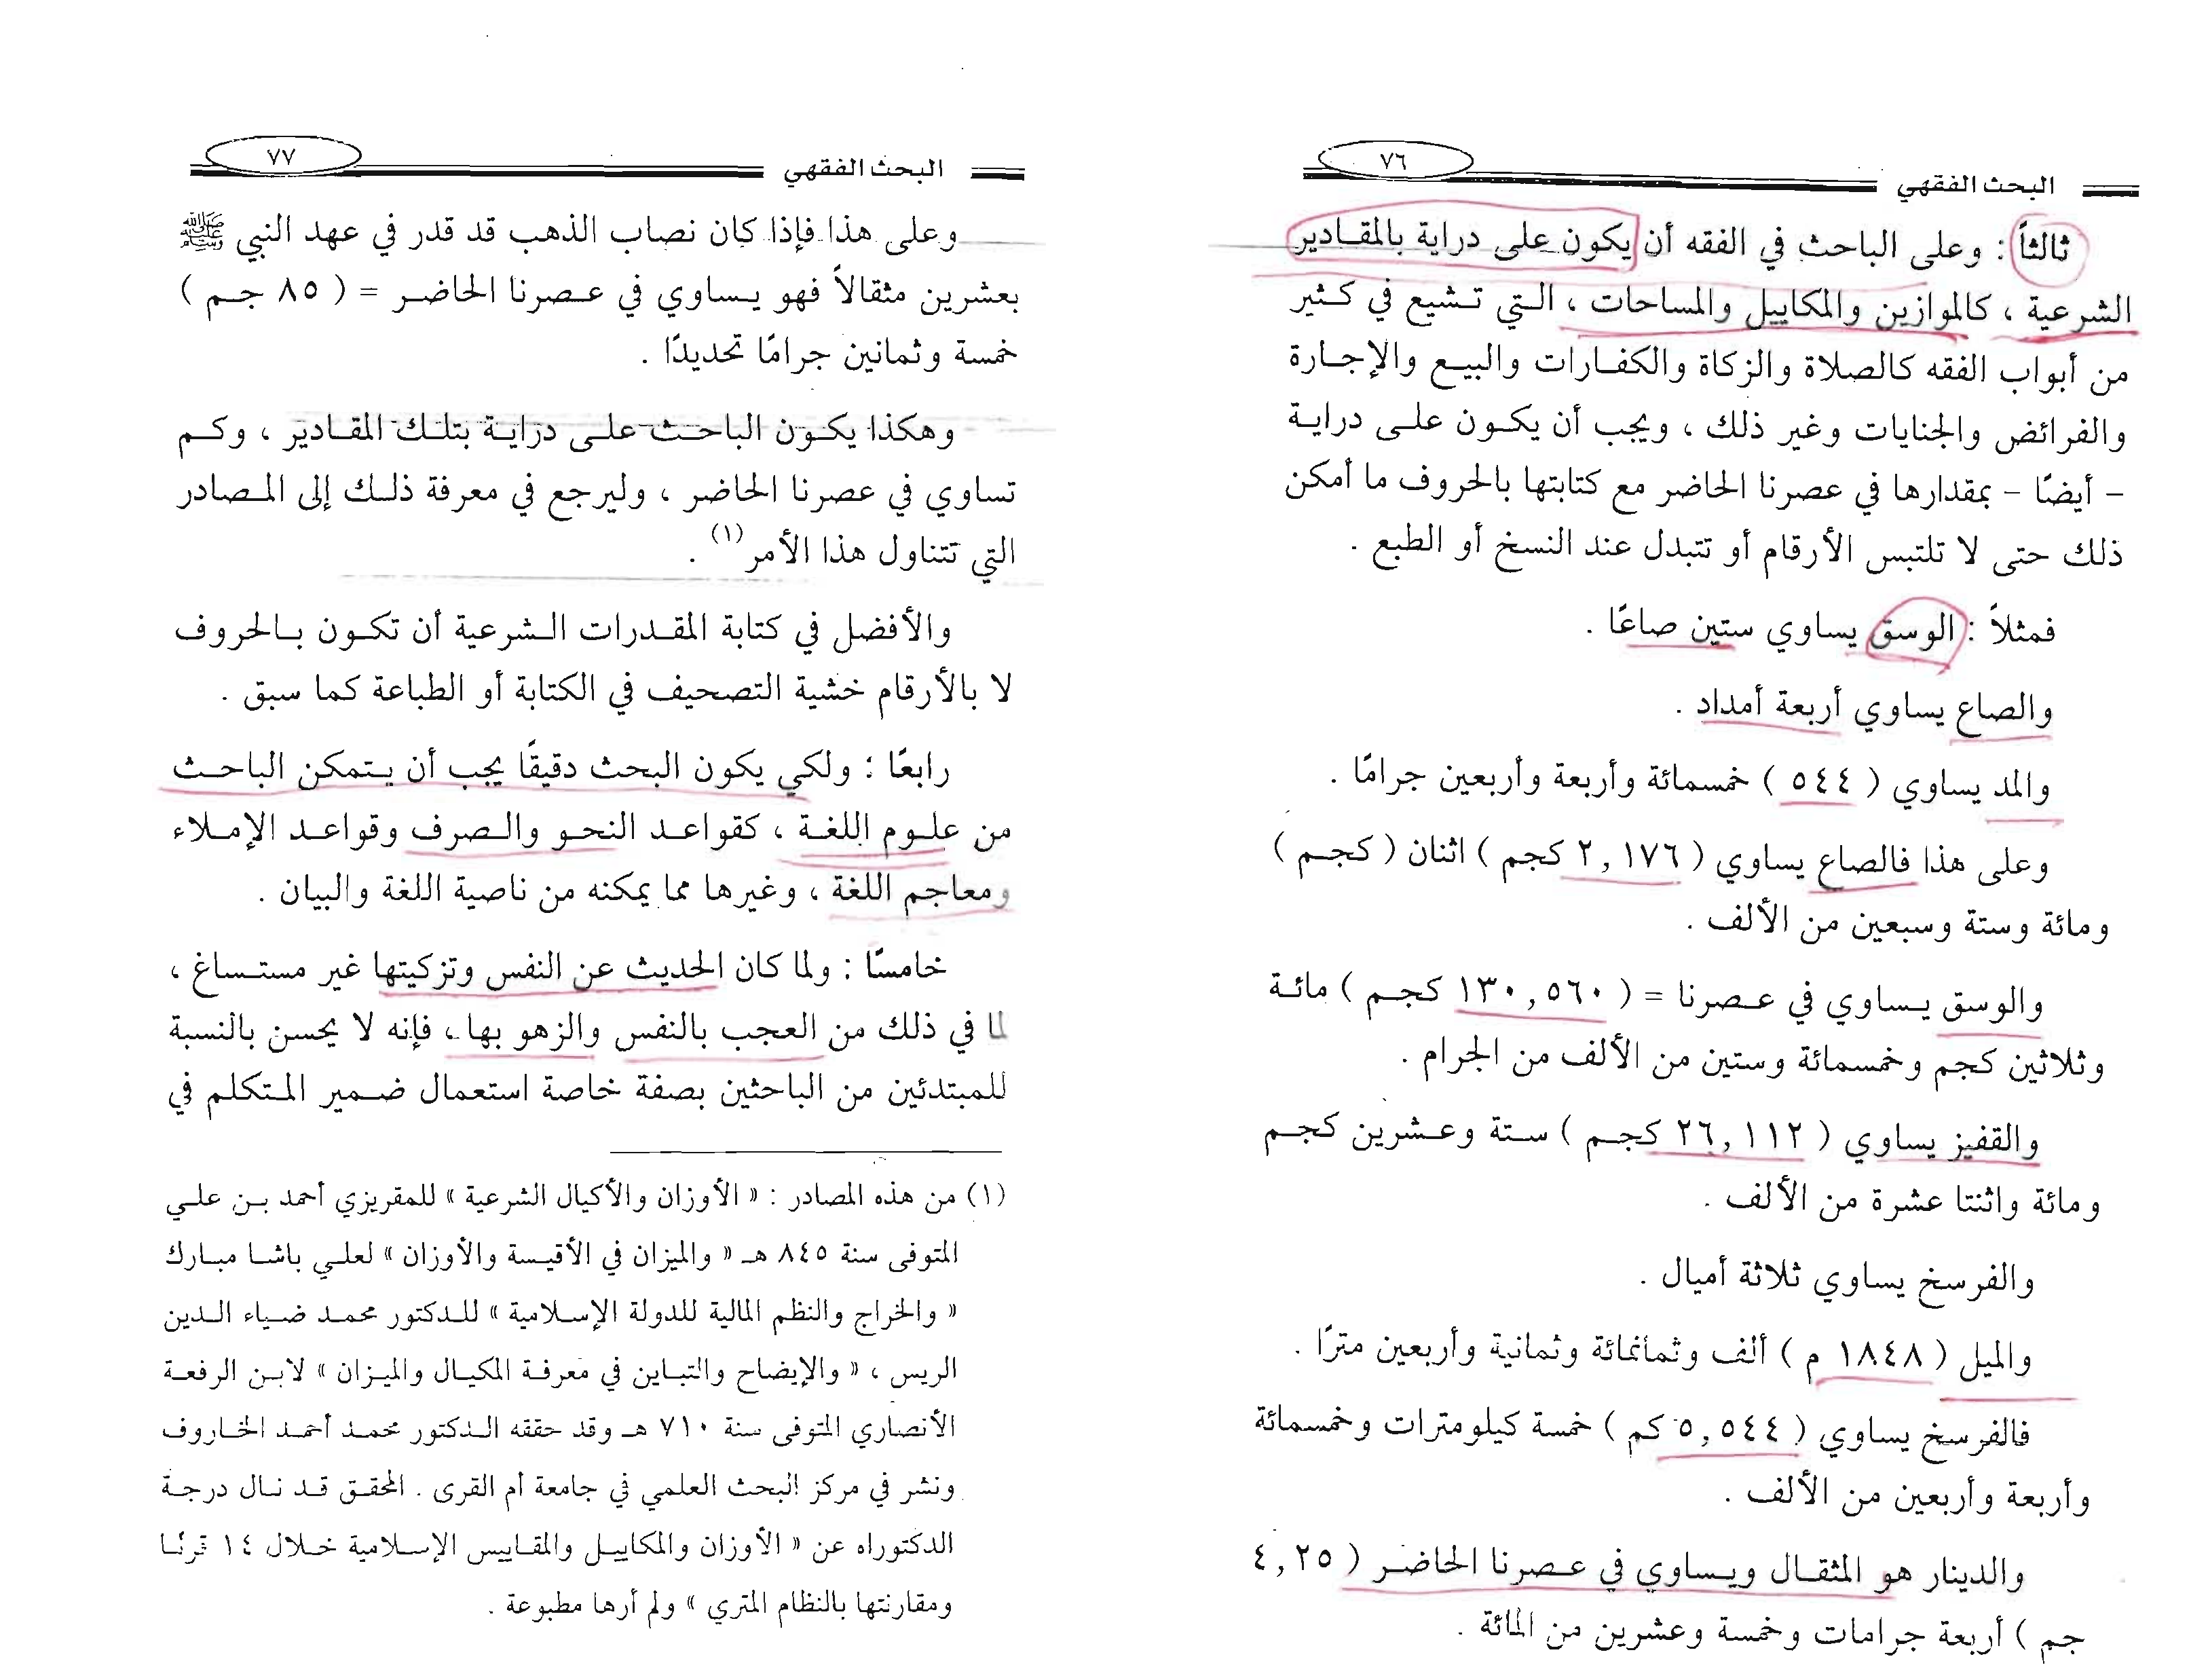 البحث الفقهي ٧٦
ثالثاً : وعلى الباحث في الفقه أن يكون على دراية بالمقـادير
الشرعية ، كالموازين والمكاييل والمساحات ، الـتي تـشيع في كـثير
من أبواب الفقه كالصلاة والزكاة والكفـارات والبيـع والإجـارة
والفرائض والجنايات وغير ذلك ، ويجب أن يكـون علـى درايـة
- أيضًا - بمقدارها في عصرنا الحاضر مع كتابتها بالحروف ما أمكن
ذلك حتى لا تلتبس الأرقام أو تتبدل عند النسخ أو الطبع .
فمثلاً : الوسق يساوي ستين صاعًا .
والصاع يساوي أربعة أمداد .
والمد يساوي ( ٥٤٤ ) خمسمائة وأربعة وأربعين جرامًا .
وعلى هذا فالصاع يساوي ( ٢,١٧٦ كجم ) اثنان ( كجـم )
ومائة وستة وسبعين من الألف .
والوسق يـساوي في عـصرنا = ( ١٣٠,٥٦٠ كجـم ) مائـة
وثلاثين كجم وخمسمائة وستين من الألف من الجرام .
والقفيز يساوي ( ٢٦,١١٢ كجـم ) سـتة وعـشرين كجـم
ومائة واثنتا عشرة من الألف .
والفرسخ يساوي ثلاثة أميال .
والميل ( ١٨٤٨ م ) ألف وثمانمائة وثمانية وأربعين مترًا .
فالفرسخ يساوي ( ٥,٥٤٤ كم ) خمسة كيلومترات وخمسمائة
وأربعة وأربعين من الألف .
والدينار هو المثقـال ويـساوي في عـصرنا الحاضـر ( ٤,٢٥
جم ) أربعة جرامات وخمسة وعشرين من المائة .
البحث الفقهي ٧٧
وعلى هذا فإذا كان نصاب الذهب قد قدر في عهد النبي ﷺ
بعشرين مثقالاً فهو يـساوي في عـصرنا الحاضـر = ( ٨٥ جـم )
خمسة وثمانين جرامًا تحديدًا .
وهكذا يكـون الباحـث علـى درايـة بتلـك المقـادير ، وكـم
تساوي في عصرنا الحاضر ، وليرجع في معرفة ذلـك إلى المـصادر
التي تتناول هذا الأمر (١) .
والأفضل في كتابة المقـدرات الـشرعية أن تكـون بـالحروف
لا بالأرقام خشية التصحيف في الكتابة أو الطباعة كما سبق .
رابعًا : ولكي يكون البحث دقيقًا يجب أن يـتمكن الباحـث
من علـوم اللغـة ، كقواعـد النحـو والـصرف وقواعـد الإمـلاء
ومعاجم اللغة ، وغيرها مما يمكنه من ناصية اللغة والبيان .
خامسًا : ولما كان الحديث عن النفس وتزكيتها غير مستـساغ ،
لما في ذلك من العجب بالنفس والزهو بها ، فإنه لا يحسن بالنسبة
للمبتدئين من الباحثين بصفة خاصة استعمال ضـمير المـتكلم في
(١) من هذه المصادر : « الأوزان والأكيال الشرعية » للمقريزي أحمد بـن علـي
المتوفى سنة ٨٤٥ هـ « والميزان في الأقيسة والأوزان » لعلـي باشـا مبـارك
« والخراج والنظم المالية للدولة الإسـلامية » للـدكتور محمـد ضـياء الـدين
الريس ، « والإيضاح والتبـاين في معرفـة المكيـال والميـزان » لابـن الرفعـة
الأنصاري المتوفى سنة ٧١٠ هـ وقد حققه الـدكتور محمـد أحمـد الخـاروف
ونشر في مركز البحث العلمي في جامعة أم القرى . المحقق قـد نـال درجـة
الدكتوراه عن « الأوزان والمكاييـل والمقـاييس الإسـلامية خـلال ١٤ قرنًـا
ومقارنتها بالنظام المتري » ولم أرها مطبوعة .